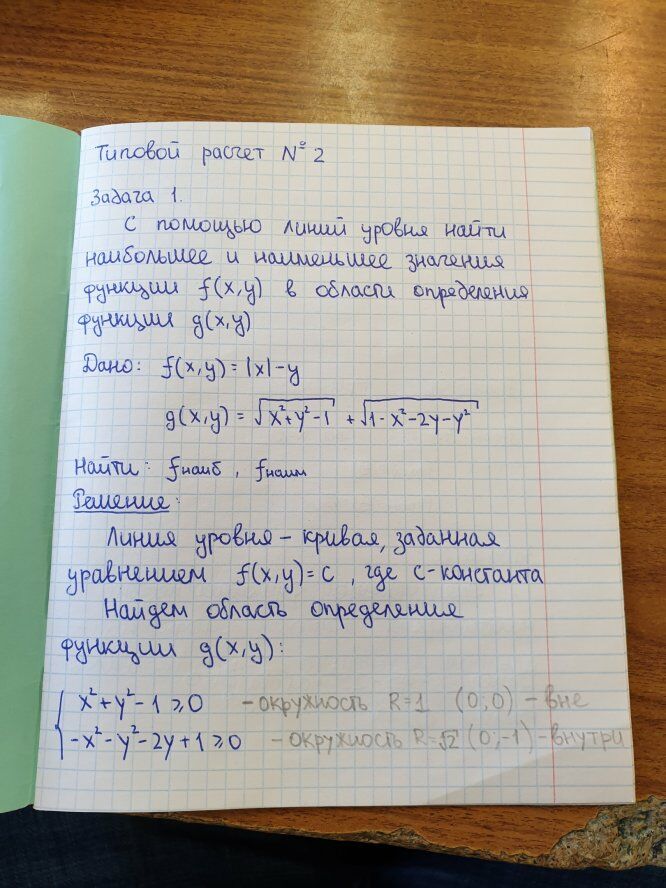 Типовой расчет № 2
Задача 1.
С помощью линий уровня найти
наибольшее и наименьшее значения
функции f(x,y) в области определения
функции g(x,y)
Дано: f(x,y) = |x| - y
g(x,y) = √(x²+y²-1) + √(1-x²-2y-y²)
Найти: fнаиб , fнаим
Решение:
Линия уровня - кривая, заданная
уравнением f(x,y) = c , где c-константа
Найдем область определения
функции g(x,y):
{ x²+y²-1 ⩾ 0 - окружность R=1 (0;0) - вне
-x²-y²-2y+1 ⩾ 0 - окружность R=√2 (0;-1) - внутри